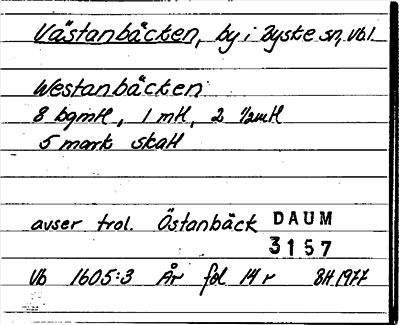 Västanbäcken, by i Byske sn, Vbl.
Westanbäcken
8 bgmtl, 1 mtl, 2 1/2mtl
5 mark skatt
avser trol. Östanbäck DAUM
3157
Vb 1605:3 År fol 14 r BH 1977